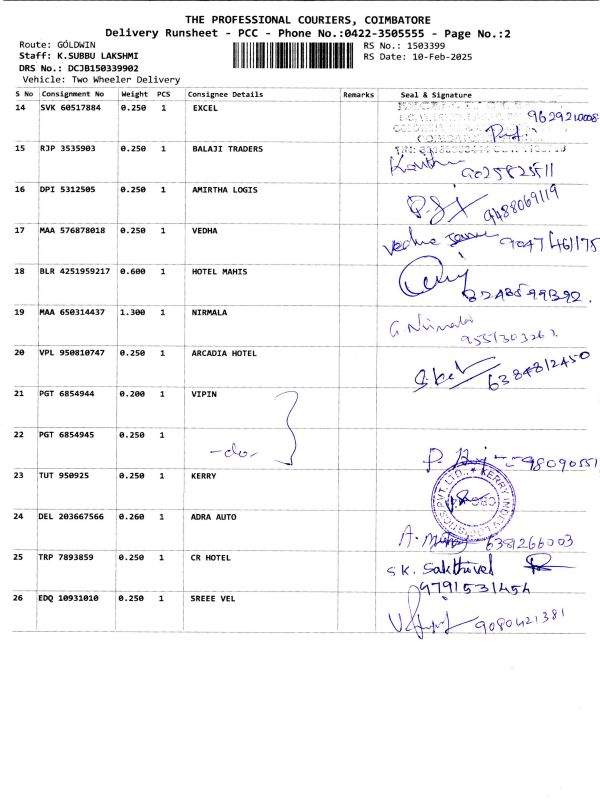 THE PROFESSIONAL COURIERS, COIMBATORE
Delivery Runsheet - PCC - Phone No.:0422-3505555 - Page No.:2
Route: GOLDWIN RS No.: 1503399
Staff: K.SUBBU LAKSHMI RS Date: 10-Feb-2025
DRS No.: DCJB150339902
Vehicle: Two Wheeler Delivery
S No Consignment No Weight PCS Consignee Details Remarks Seal & Signature
14 SVK 60517884 0.250 1 EXCEL 9629210008
15 RJP 3535903 0.250 1 BALAJI TRADERS
16 DPI 5312505 0.250 1 AMIRTHA LOGIS 9488069119
17 MAA 576878018 0.250 1 VEDHA
18 BLR 4251959217 0.600 1 HOTEL MAHIS
19 MAA 650314437 1.300 1 NIRMALA G. Nirmala
20 VPL 950810747 0.250 1 ARCADIA HOTEL 6384812450
21 PGT 6854944 0.200 1 VIPIN
22 PGT 6854945 0.250 1 -do-
23 TUT 950925 0.250 1 KERRY
24 DEL 203667566 0.260 1 ADRA AUTO 6381266003
25 TRP 7893859 0.250 1 CR HOTEL S.K. Sakthivel
9791531454
26 EDQ 10931010 0.250 1 SREEE VEL 9080421381